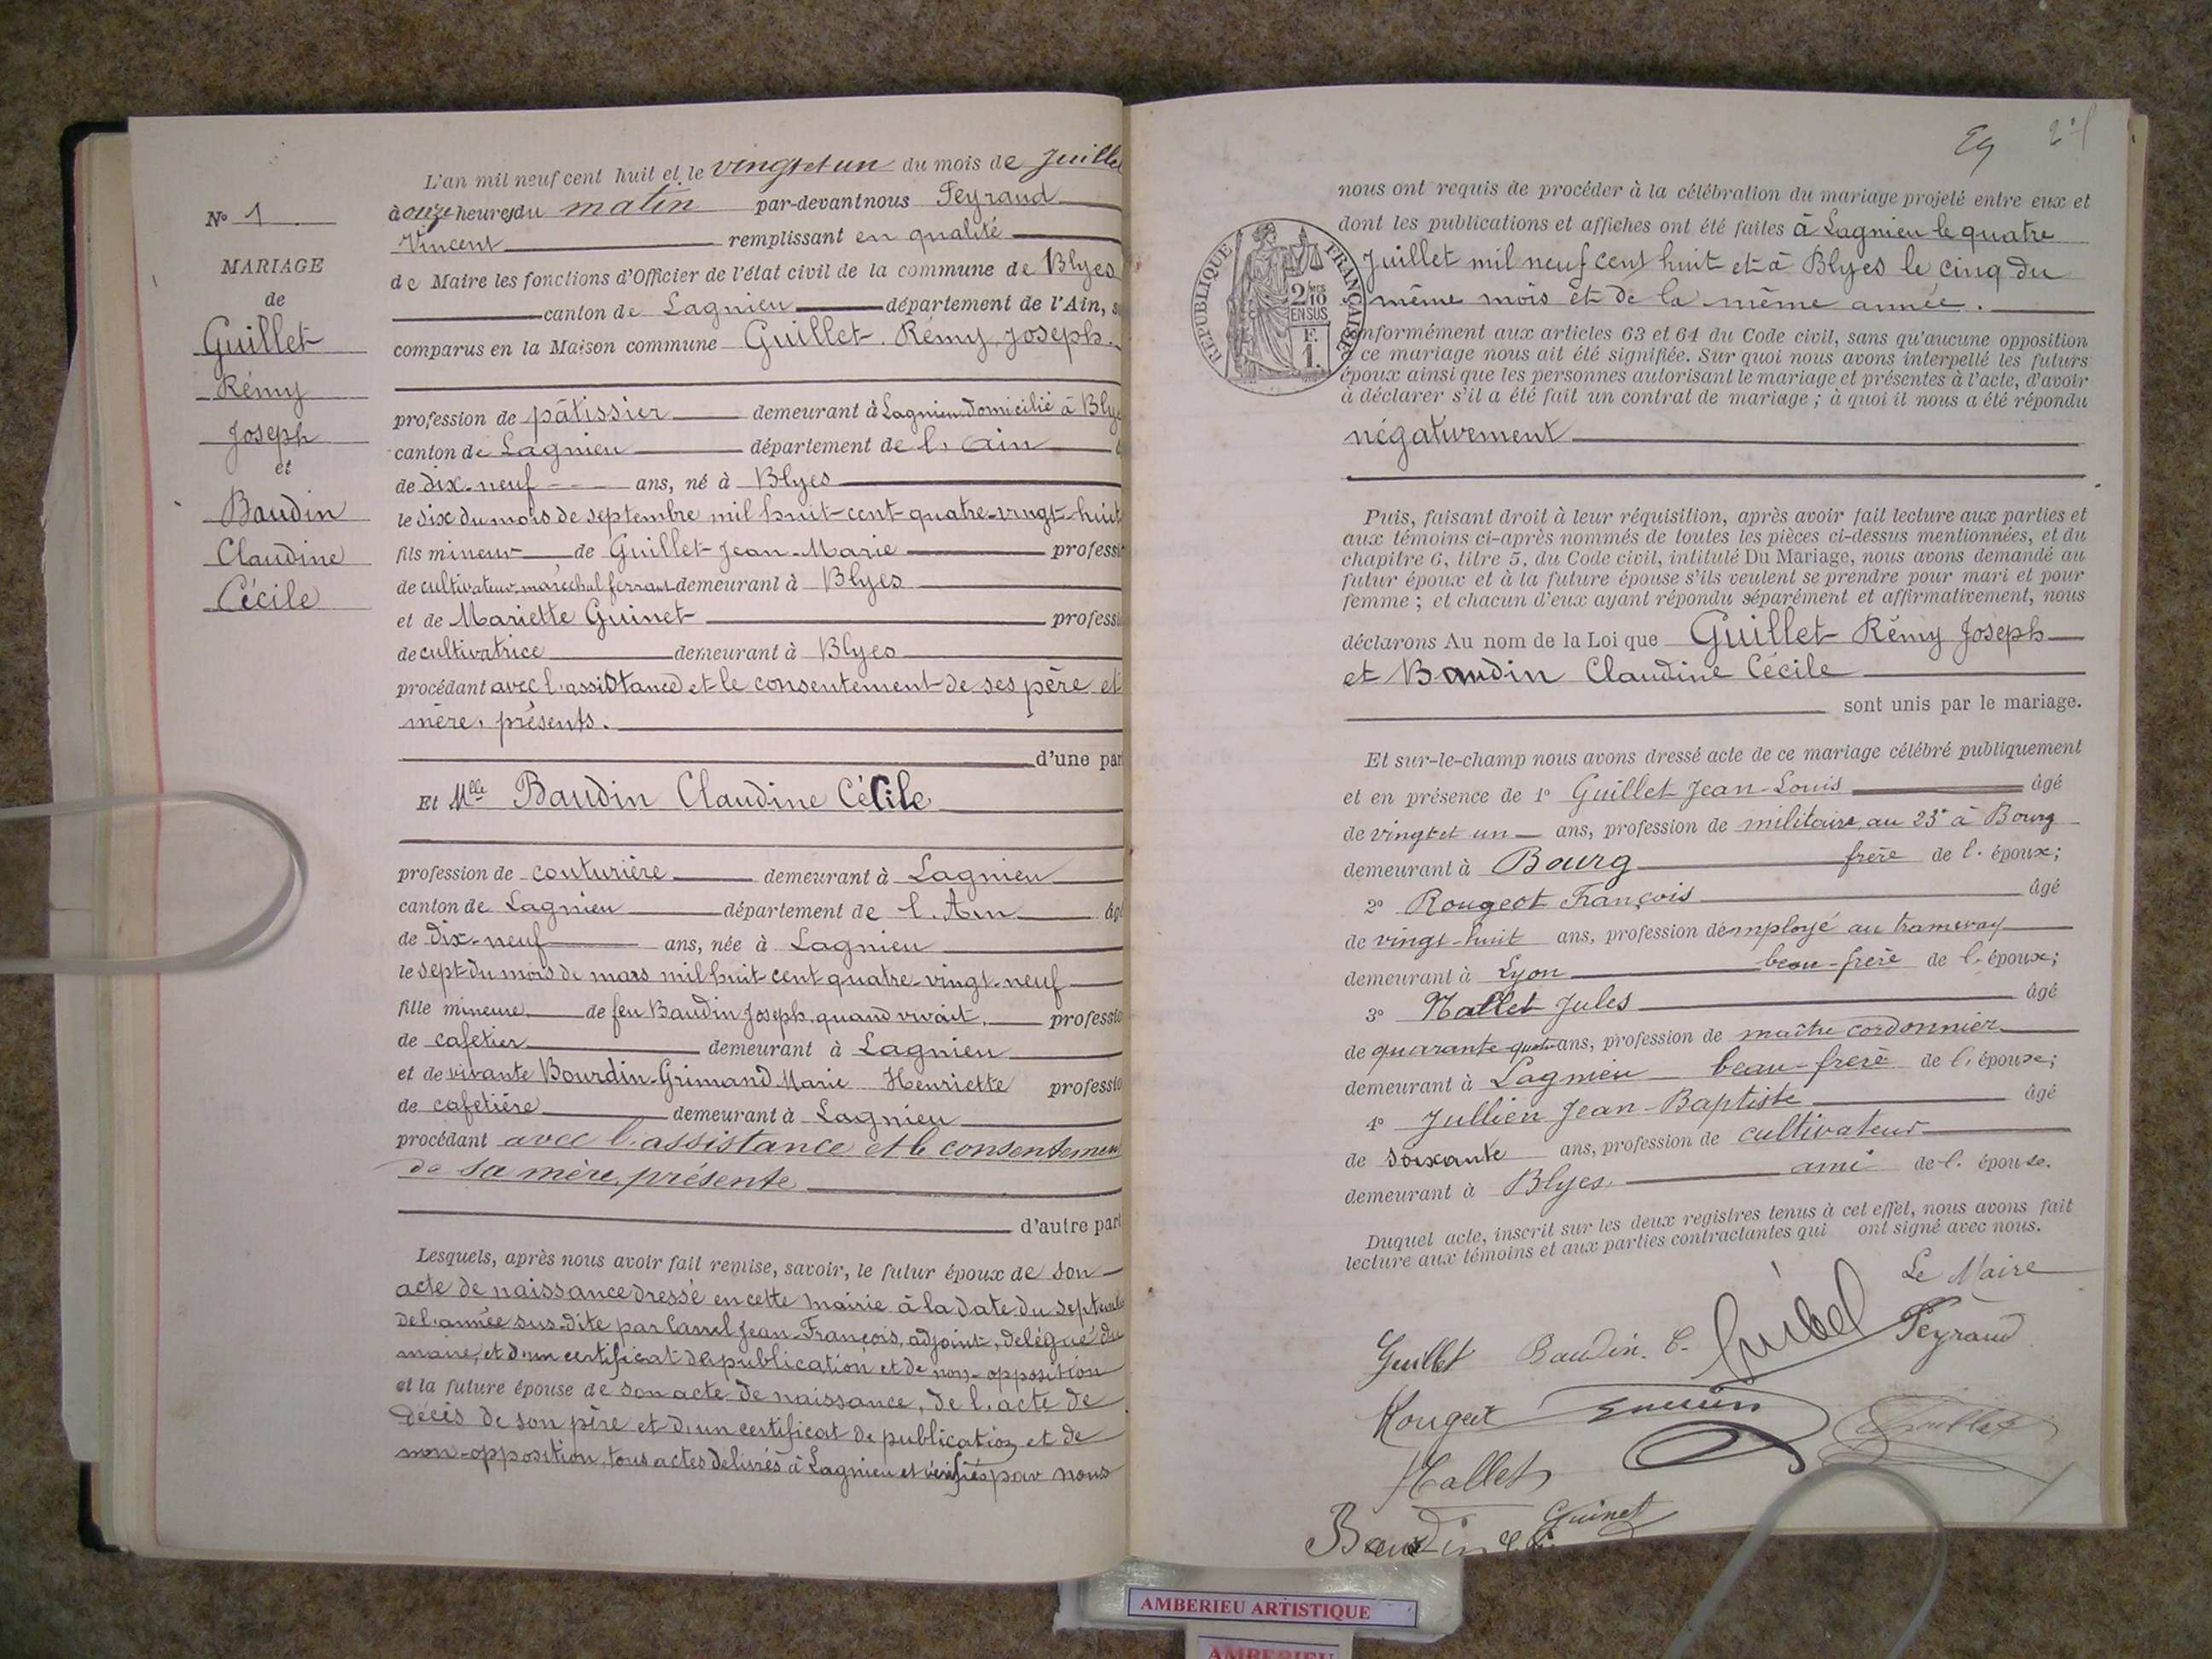 N° 1
MARIAGE
de
Guillet
Rémy
Joseph
et
Baudin
Claudine
Cécile
L'an mil neuf cent huit et le vingt et un du mois de Juillet
à onze heures du matin par-devant nous Peyraud
Vincent remplissant en qualité
de Maire les fonctions d'Officier de l'état civil de la commune de Blyes
canton de Lagnieu département de l'Ain, s
comparus en la Maison commune Guillet Rémy Joseph.
profession de pâtissier demeurant à Lagnieu domicilié à Blye
canton de Lagnieu département de l'Ain
de dix-neuf ans, né à Blyes
le six du mois de septembre mil huit-cent-quatre-vingt-huit
fils mineur de Guillet Jean-Marie professi
de cultivateur, maréchal ferrant demeurant à Blyes
et de Mariette Guinet professi
de cultivatrice demeurant à Blyes
procédant avec l'assistance et le consentement de ses père et
mère, présents.
d'une par
Et Mlle Baudin Claudine Cécile
profession de couturière demeurant à Lagnieu
canton de Lagnieu département de l'Ain âgé
de dix-neuf ans, née à Lagnieu
le sept du mois de mars mil huit cent quatre-vingt-neuf
fille mineure de feu Baudin Joseph, quand vivait, professio
de cafetier demeurant à Lagnieu
et de vivante Bourdin-Grimand Marie Henriette professio
de cafetière demeurant à Lagnieu
procédant avec l'assistance et le consentemen
de sa mère, présente
d'autre part
Lesquels, après nous avoir fait remise, savoir, le futur époux de son
acte de naissance dressé en cette mairie à la date du septembre
de l'année sus-dite par Jean-François, adjoint, délégué du
maire, et d'un certificat de publication et de non-opposition
et la future épouse de son acte de naissance, de l'acte de
décès de son père et d'un certificat de publication et de
non-opposition, tous actes délivrés à Lagnieu et vérifiés par nous
RÉPUBLIQUE FRANÇAISE
2/10 EN SUS
F. 1.
nous ont requis de procéder à la célébration du mariage projeté entre eux et
dont les publications et affiches ont été faites à Lagnieu le quatre
Juillet mil neuf cent huit et à Blyes le cinq du
même mois et de la même année.
onformément aux articles 63 et 64 du Code civil, sans qu'aucune opposition
ce mariage nous ait été signifiée. Sur quoi nous avons interpellé les futurs
époux ainsi que les personnes autorisant le mariage et présentes à l'acte, d'avoir
à déclarer s'il a été fait un contrat de mariage ; à quoi il nous a été répondu
négativement
Puis, faisant droit à leur réquisition, après avoir fait lecture aux parties et
aux témoins ci-après nommés de toutes les pièces ci-dessus mentionnées, et du
chapitre 6, titre 5, du Code civil, intitulé Du Mariage, nous avons demandé au
futur époux et à la future épouse s'ils veulent se prendre pour mari et pour
femme ; et chacun d'eux ayant répondu séparément et affirmativement, nous
déclarons Au nom de la Loi que Guillet Rémy Joseph
et Baudin Claudine Cécile
sont unis par le mariage.
Et sur-le-champ nous avons dressé acte de ce mariage célébré publiquement
et en présence de 1° Guillet Jean-Louis âgé
de vingt et un ans, profession de militaire au 23e à Bourg
demeurant à Bourg frère de l'époux;
2° Rougeot François âgé
de vingt-huit ans, profession d'employé au tramway
demeurant à Lyon beau-frère de l'époux;
3° Hallet Jules âgé
de quarante-quatre ans, profession de maître cordonnier
demeurant à Lagnieu beau-frère de l'épouse;
4° Jullien Jean-Baptiste âgé
de soixante ans, profession de cultivateur
demeurant à Blyes ami de l'épouse.
Duquel acte, inscrit sur les deux registres tenus à cet effet, nous avons fait
lecture aux témoins et aux parties contractantes qui ont signé avec nous.
Le Maire
Guillet Baudin. C. Peyraud
Rougeot Guillet
Hallet
Guinet
Baudin
AMBERIEU ARTISTIQUE
AMBERIEU